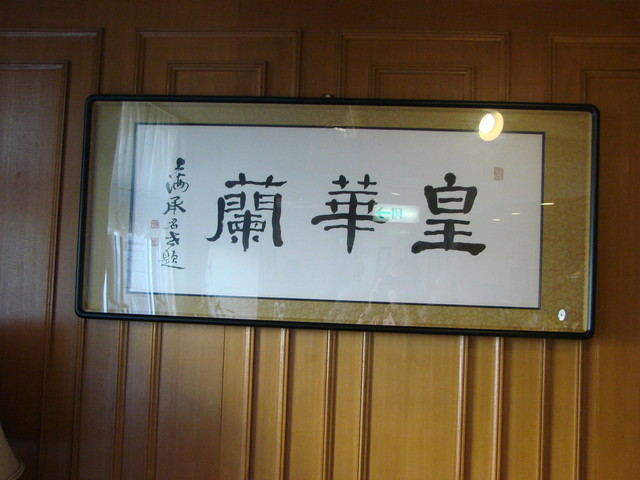 皇華蘭
上海承名世題